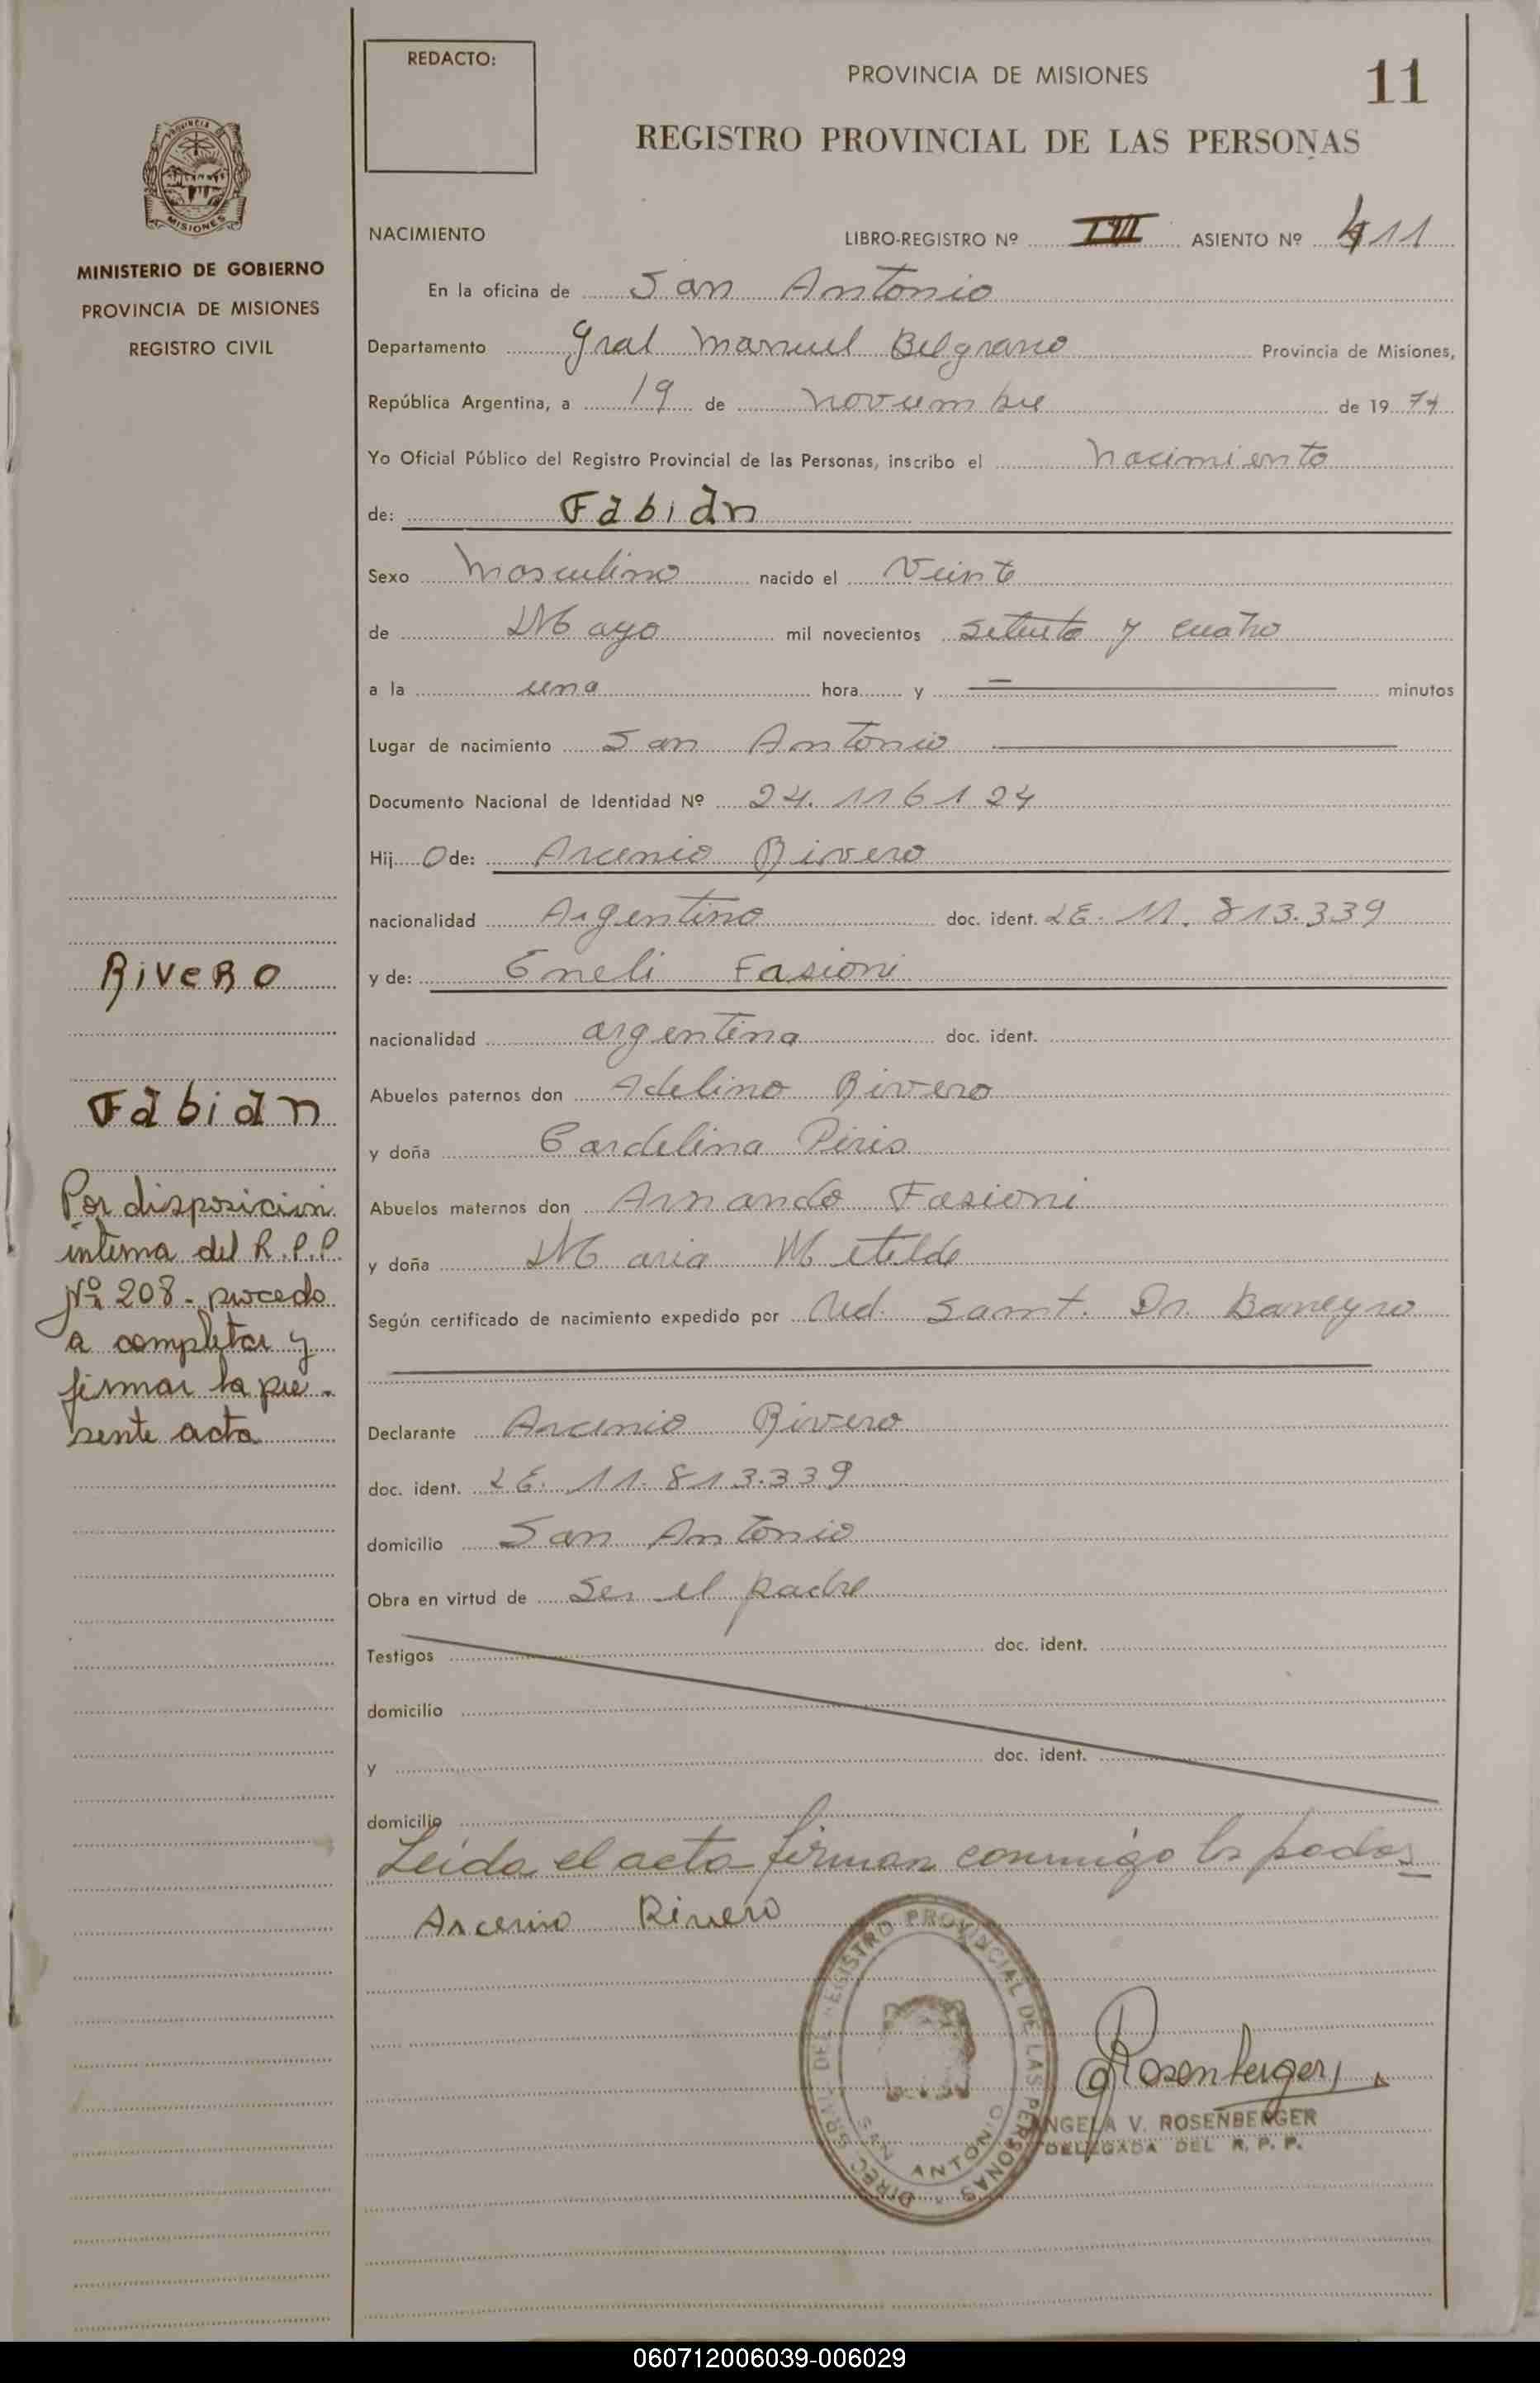 REDACTO:
PROVINCIA DE MISIONES
11
REGISTRO PROVINCIAL DE LAS PERSONAS
PROVINCIA DE
MISIONES
MINISTERIO DE GOBIERNO
PROVINCIA DE MISIONES
REGISTRO CIVIL
NACIMIENTO
LIBRO-REGISTRO Nº ASIENTO Nº 411
En la oficina de San Antonio
Departamento Gral Manuel Belgrano Provincia de Misiones,
República Argentina, a 19 de noviembre de 19 74
Yo Oficial Público del Registro Provincial de las Personas, inscribo el nacimiento
de: Fabián
Sexo Masculino nacido el Veinte
de Mayo mil novecientos setenta y cuatro
a la una hora y — minutos
Lugar de nacimiento San Antonio
Documento Nacional de Identidad Nº 24.116124
Hij o de: Arcenio Rivero
nacionalidad Argentino doc. ident. LE. 11.813.339
y de: Eneli Fasioni
nacionalidad argentina doc. ident.
Abuelos paternos don Adelino Rivero
y doña Cardelina Piris
Abuelos maternos don Armando Fasioni
y doña Maria Metilde
Según certificado de nacimiento expedido por Med. Sanit. Dr.
Declarante Arcenio Rivero
doc. ident. LE. 11.813.339
domicilio San Antonio
Obra en virtud de ser el padre
Testigos doc. ident.
domicilio
y doc. ident.
domicilio
Leída el acta firman conmigo los padres
Arcenio Rivero
RIVERO
Fabian
Por disposicion
interna del R.P.P.
Nº 208 - procedo
a completar y
firmar la pre-
sente acta
DIREC. GRAL. DEL REGISTRO PROVINCIAL DE LAS PERSONAS
SAN ANTONIO
Rosenberger
ANGELA V. ROSENBERGER
DELEGADA DEL R. P. P.
060712006039-006029